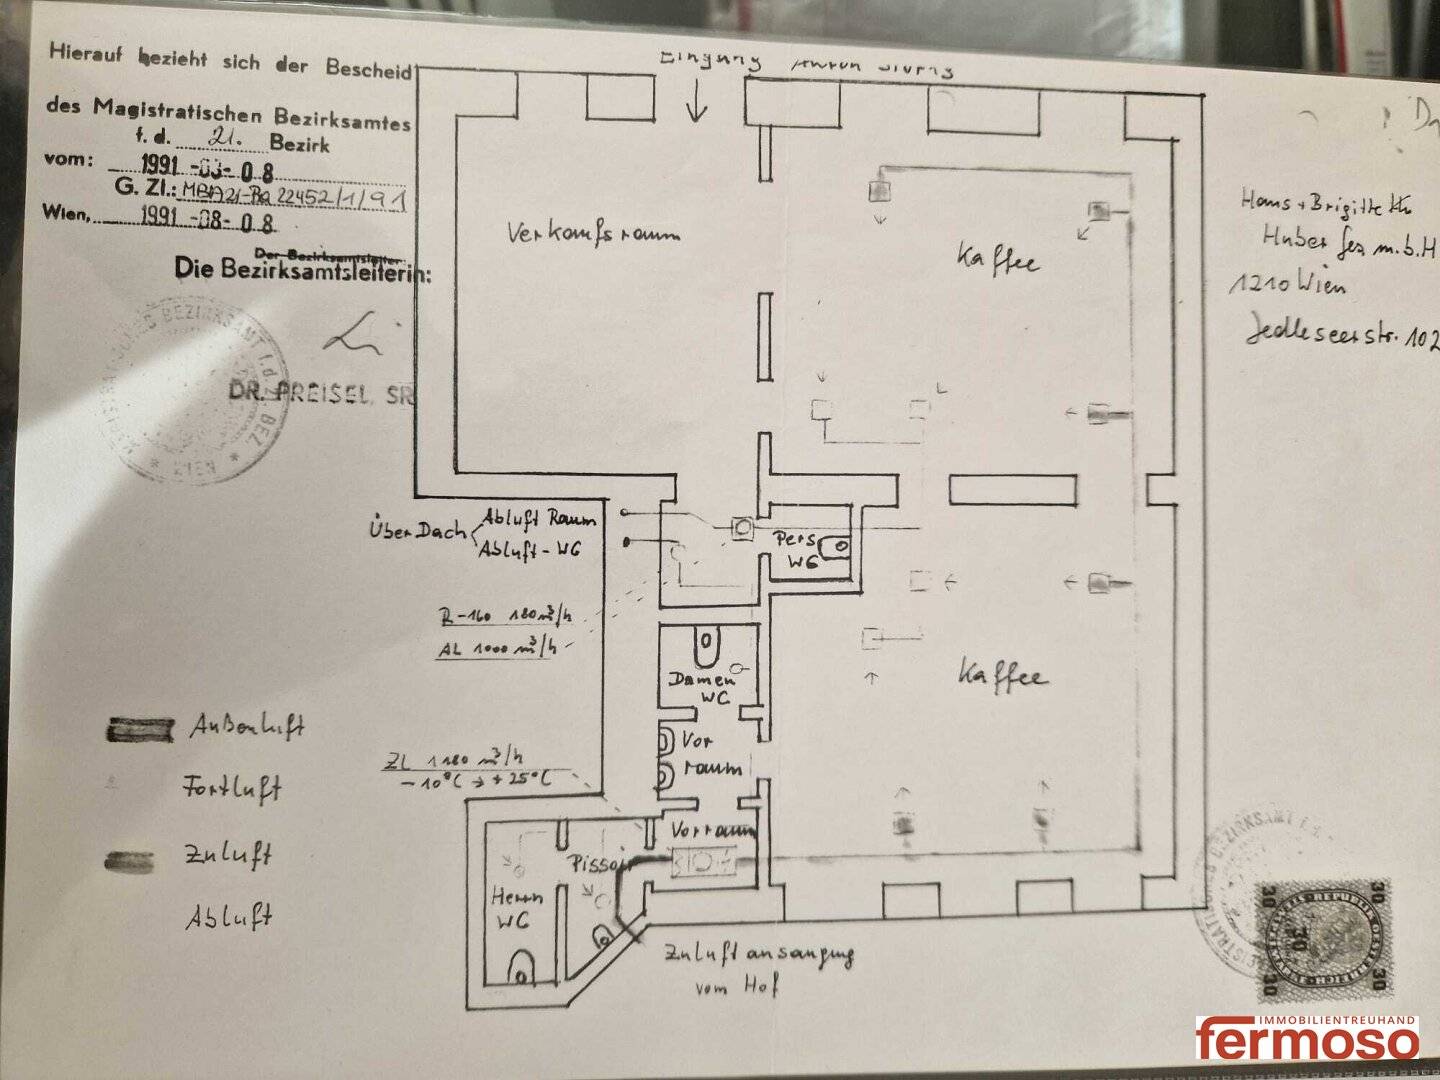 Hierauf bezieht sich der Bescheid
des Magistratischen Bezirksamtes
f. d. 21. Bezirk
vom: 1991 -03- 08
G. Zl.: MBA21-Ba 22452/1/91
Wien, 1991 -08- 08
Der Bezirksamtsleiter
Die Bezirksamtsleiterin:
DR. PREISEL, SR
WIEN
Eingang
Hans + Brigitte
Huber Ges m.b.H
1210 Wien
Jedleseerstr. 102
Verkaufsraum
Kaffee
Über Dach
Abluft Raum
Abluft - WC
Pers
WC
R-160 180 m³/h
AL 1000 m³/h
Damen
WC
Kaffee
Vor
raum
ZL 1180 m³/h
-10°C → +25°C
Außenluft
Fortluft
Zuluft
Abluft
Vorraum
Pissoir
Herrn
WC
Zuluftansaugung
vom Hof
30
30
30
30
30
REPUBLIK OESTERREICH
IMMOBILIENTREUHAND
fermoso